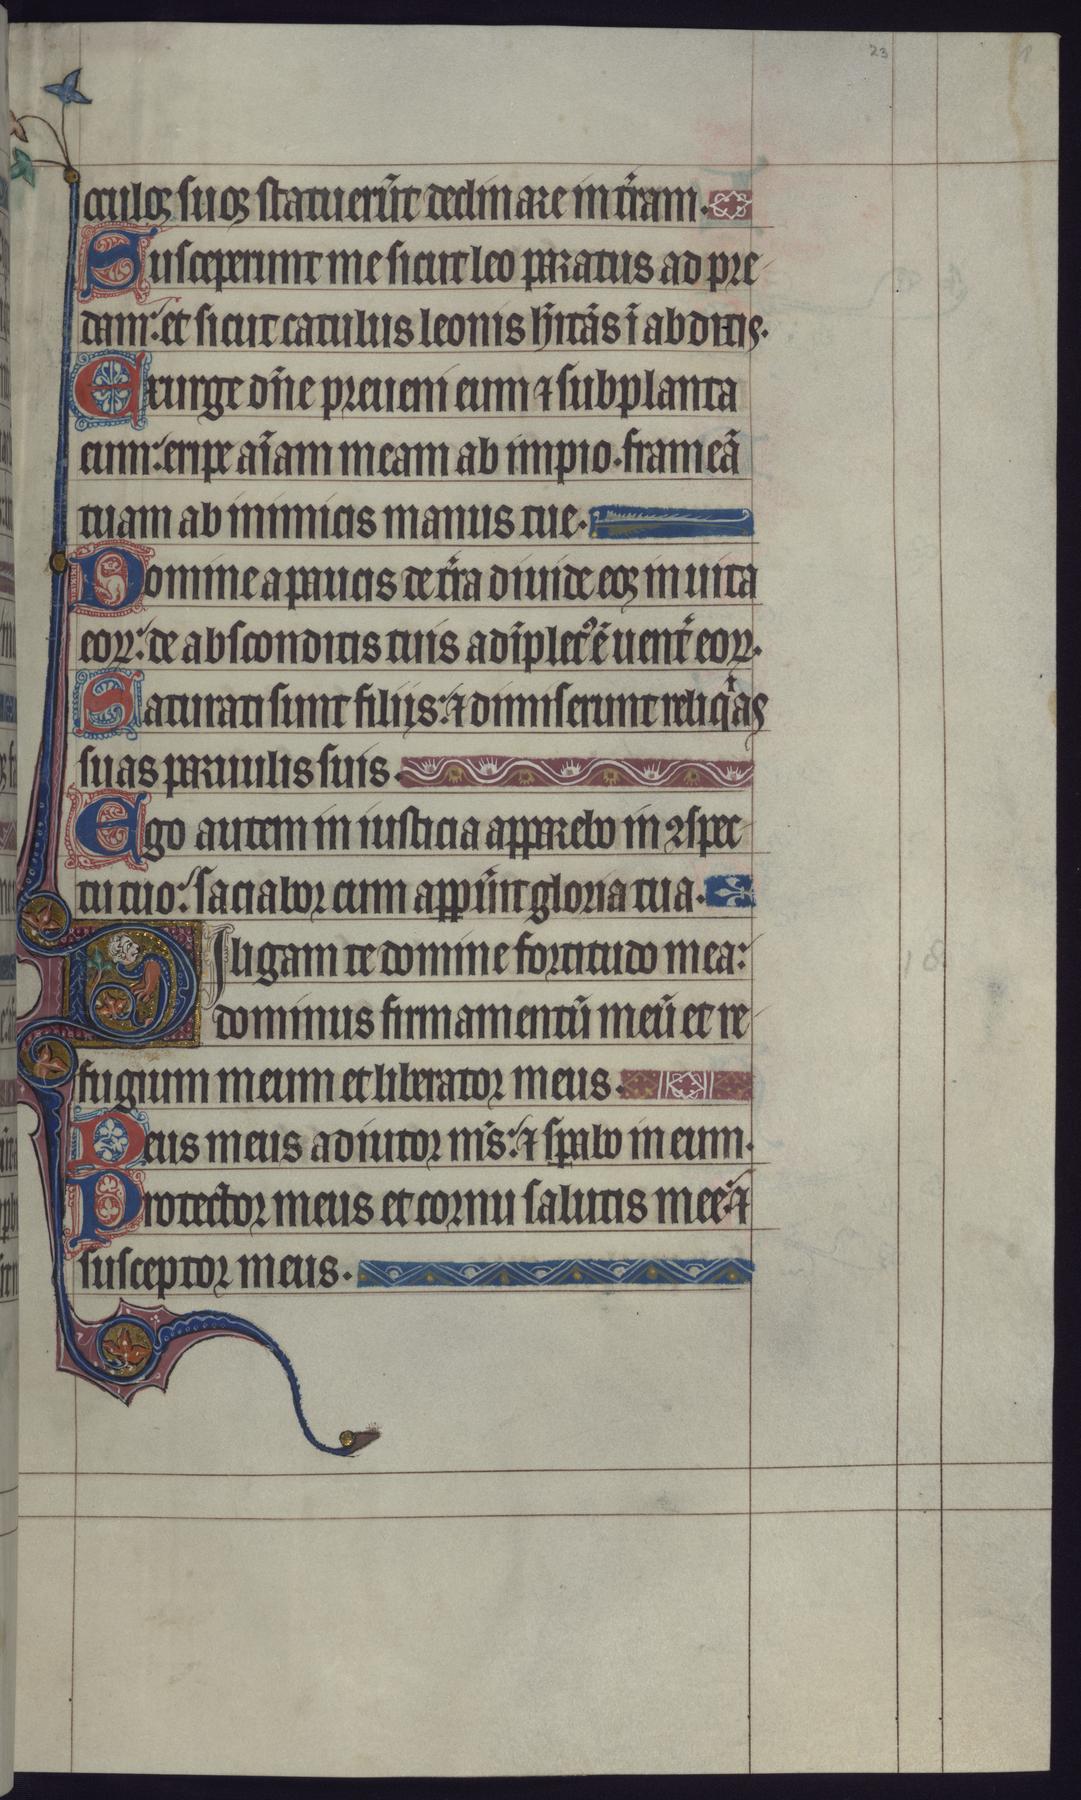 23
oculos suos statuerūt declinare in t̄ram.
Susceperunt me sicut leo paratus ad pre
dam: et sicut catulus leonis h̄itās ī abditis.
Exurge dn̄e preueni eum ⁊ subplanta
eum: eripe aīam meam ab impio. frameā
tuam ab inimicis manus tue.
Domine a paucis de t̄ra diuide eos in uita
eoꝝ: de absconditis tuis adīplet᷒ ē uent̄ eoꝝ.
Saturati sunt filijs: ⁊ dimiserunt reliqͣas
suas paruulis suis.
Ego autem in iusticia apparebo in ɔspec
tu tuo: saciabor cum appūit gloria tua.
Diligam te domine fortitudo mea:
dominus firmamentū meū et re
fugium meum et liberator meus.
Deus meus adiutor m̄s: ⁊ sꝑabo in eum.
Protector meus et cornu salutis mee: ⁊
susceptor meus.